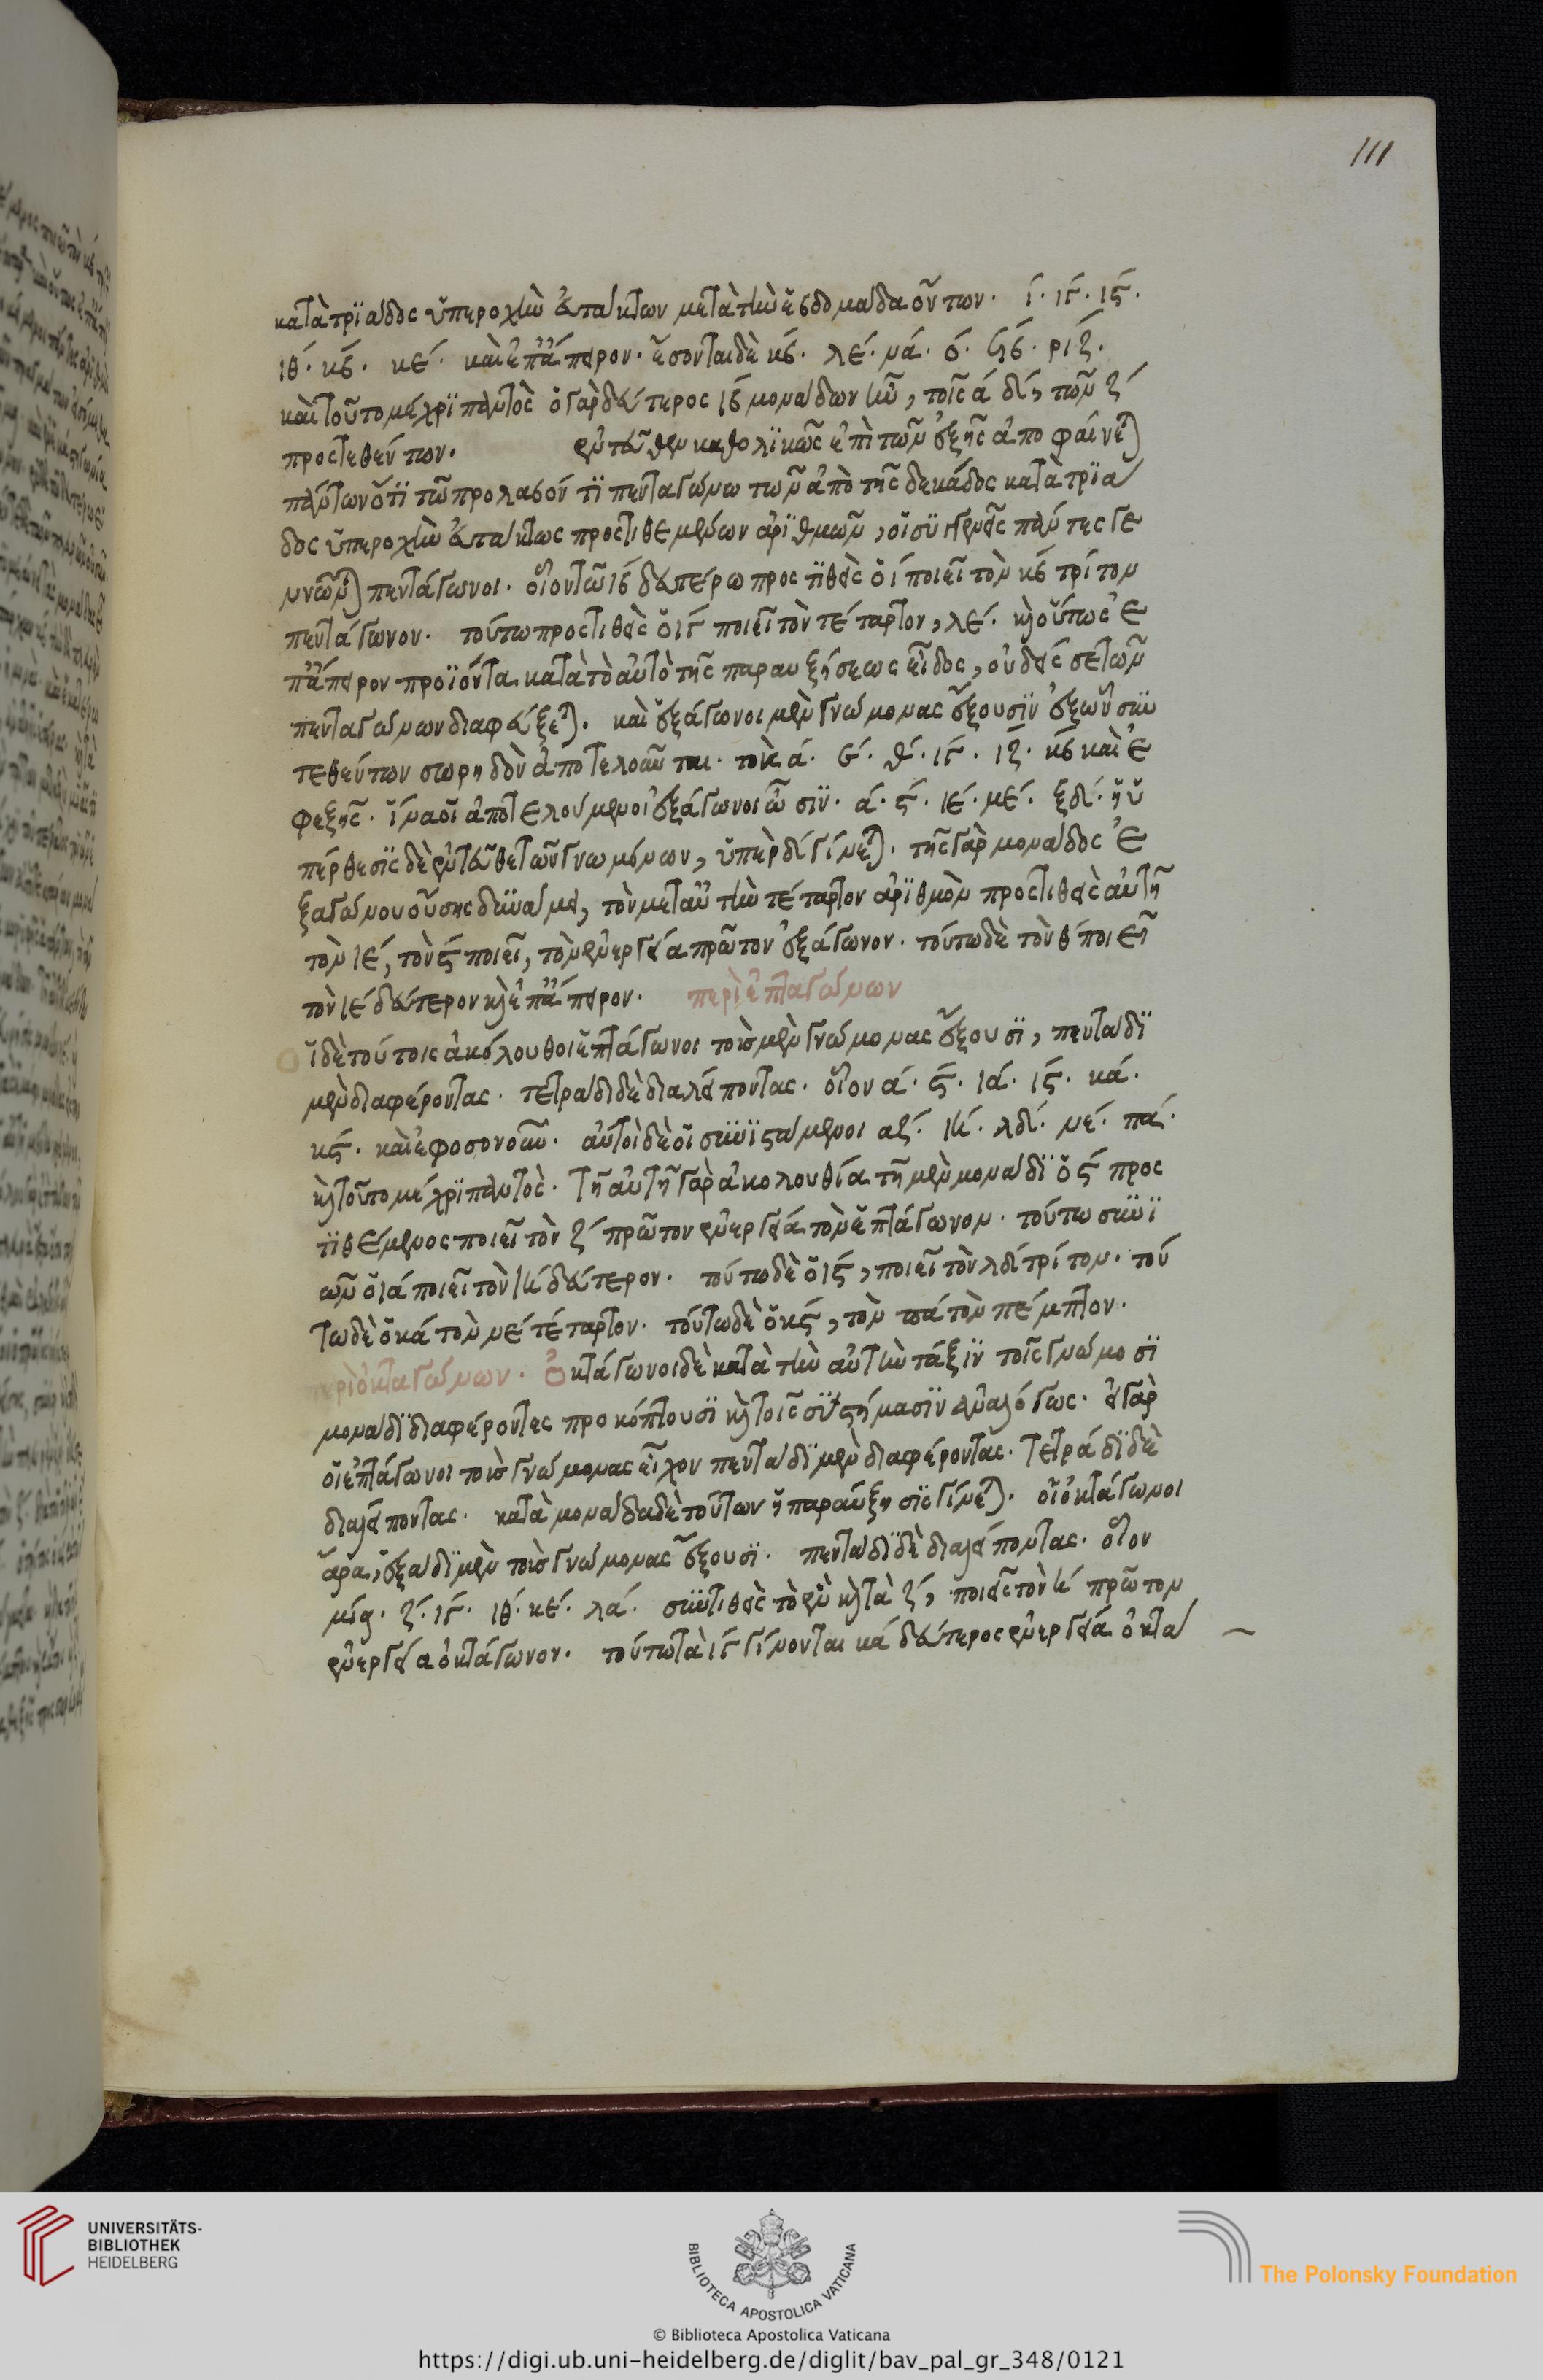 111
κατὰ τριάδος ὑπεροχὴν εὐτάκτων μετὰ τὴν ἑβδομάδα ὄντων. ί. ιγ́. ις́.
ιθ́. κβ́. κέ. καὶ ἐπ' ἄπειρον. ἔσονται δὲ κβ́. λέ. μά. ό. ϟβ́. ριζ́.
καὶ τοῦτο μέχρι παντὸς ὁ γὰρ δεύτερος ιβ́ μονάδων ἦν, τοῖς ά δ́, τῶν ζ́
προστεθέντων. ἐντεῦθεν καθολικῶς ἐπὶ τῶν ἑξῆς ἀποφαίνεται
πάντων ὅτι τῶ προλαβόντι πενταγώνω τῶν ἀπὸ τῆς δεκάδος κατὰ τριά
δος ὑπεροχὴν εὐτάκτως προστιθεμένων ἀριθμῶν, οἱ συνεχεῖς πάντες γε
ννῶνται πεντάγωνοι. οἷον τῶ ιβ́ δευτέρω προστιθεὶς ὁ ί ποιεῖ τὸν κβ́ τρίτον
πεντάγωνον. τούτω προστιθεὶς ὁ ιγ́ ποιεῖ τὸν τέταρτον, λέ. καὶ οὕτως ἐ
π' ἄπειρον προϊόντα κατὰ τὸ αὐτὸ τῆς παραυξήσεως εἶδος, οὐδείς σε τῶν
πενταγώνων διαφεύξεται. καὶ ἑξάγωνοι μὲν γνώμονας ἕξουσιν ἐξ ὧν συν
τεθέντων σωρηδὸν ἀποτελοῦνται. τοὺς ά. έ. θ́. ιγ́. ιζ́. κβ́ καὶ ἐ
φεξῆς. ἵνα οἱ ἀποτελούμενοι ἑξάγωνοι ὦσιν. ά. ς́. ιέ. μέ. ξδ́. ἡ ὑ
πέρθεσις δὲ ἐνταῦθα τῶν γνωμόνων, ὑπὲρ δ́ γίνεται. τῆς γὰρ μονάδος ἑ
ξαγώνου οὔσης δυνάμει, τὸν μετ' αὐτὴν τέταρτον ἀριθμὸν προστιθεὶς αὐτῆ
τὸν ιέ, τὸν ς́ ποιεῖ, τὸν ἐνεργεία πρῶτον ἑξάγωνον. τούτω δὲ τὸν θ́ ποιεῖ
τὸν ιέ δεύτερον καὶ ἐπ' ἄπειρον. περὶ ἑπταγώνων
Οἱ δὲ τούτοις ἀκόλουθοι ἑπτάγωνοι τοὺς μὲν γνώμονας ἕξουσι, πεντάδι
μὲν διαφέροντας. τετράδι δὲ διαλείποντας. οἷον ά. ς́. ιά. ις́. κά.
κς́. καὶ ἐφ' ὅσον οὖν. αὐτοὶ δὲ οἱ συνιστάμενοι αζ́. ιή. λδ́. νέ. πά.
καὶ τοῦτο μέχρι παντός. τῆ αὐτῆ γὰρ ἀκολουθία τῆ μὲν μονάδι ὁ ς́ προς
τιθέμενος ποιεῖ τὸν ζ́ πρῶτον ἐνεργεία τὸν ἑπτάγωνον. τούτω συνι
ὼν ὁ ιά ποιεῖ τὸν ιή δεύτερον. τούτω δὲ ὁ ις́, ποιεῖ τὸν λδ́ τρίτον. τού
τω δὲ ὁ κά τὸν νέ τέταρτον. τούτω δὲ ὁ κς́, τὸν πά τὸν πέμπτον.
περὶ ὀκταγώνων. Ὀκτάγωνοι δὲ κατὰ τὴν αὐτὴν τάξιν τοῖς γνώμοσι
μονάδι διαφέροντες προκόπτουσι καὶ τοῖς συστήμασιν ἀναλόγως. εἰ γὰρ
οἱ ἑπτάγωνοι τοὺς γνώμονας εἶχον πεντάδι μὲν διαφέροντας. τετράδι δὲ
διαλείποντας. κατὰ μονάδα δὲ τούτων ἡ παραύξησις γίνεται. οἱ ὀκτάγωνοι
ἄρα, ἑξάδι μὲν τοὺς γνώμονας ἕξουσι. πεντάδι δὲ διαλείποντας. οἷον
μία. ζ́. ιγ́. ιθ́. κέ. λά. συντιθεὶς τὸ ἓν καὶ τὰ ζ́, ποιεῖς τὸν ή πρῶτον
ἐνεργεία ὀκτάγωνον. τούτω τὰ ιγ́ γίνονται κά δεύτερος ἐνεργεία ὀκτά
UNIVERSITÄTS-
BIBLIOTHEK
HEIDELBERG
BIBLIOTECA APOSTOLICA VATICANA
The Polonsky Foundation
© Biblioteca Apostolica Vaticana
https://digi.ub.uni-heidelberg.de/diglit/bav_pal_gr_348/0121